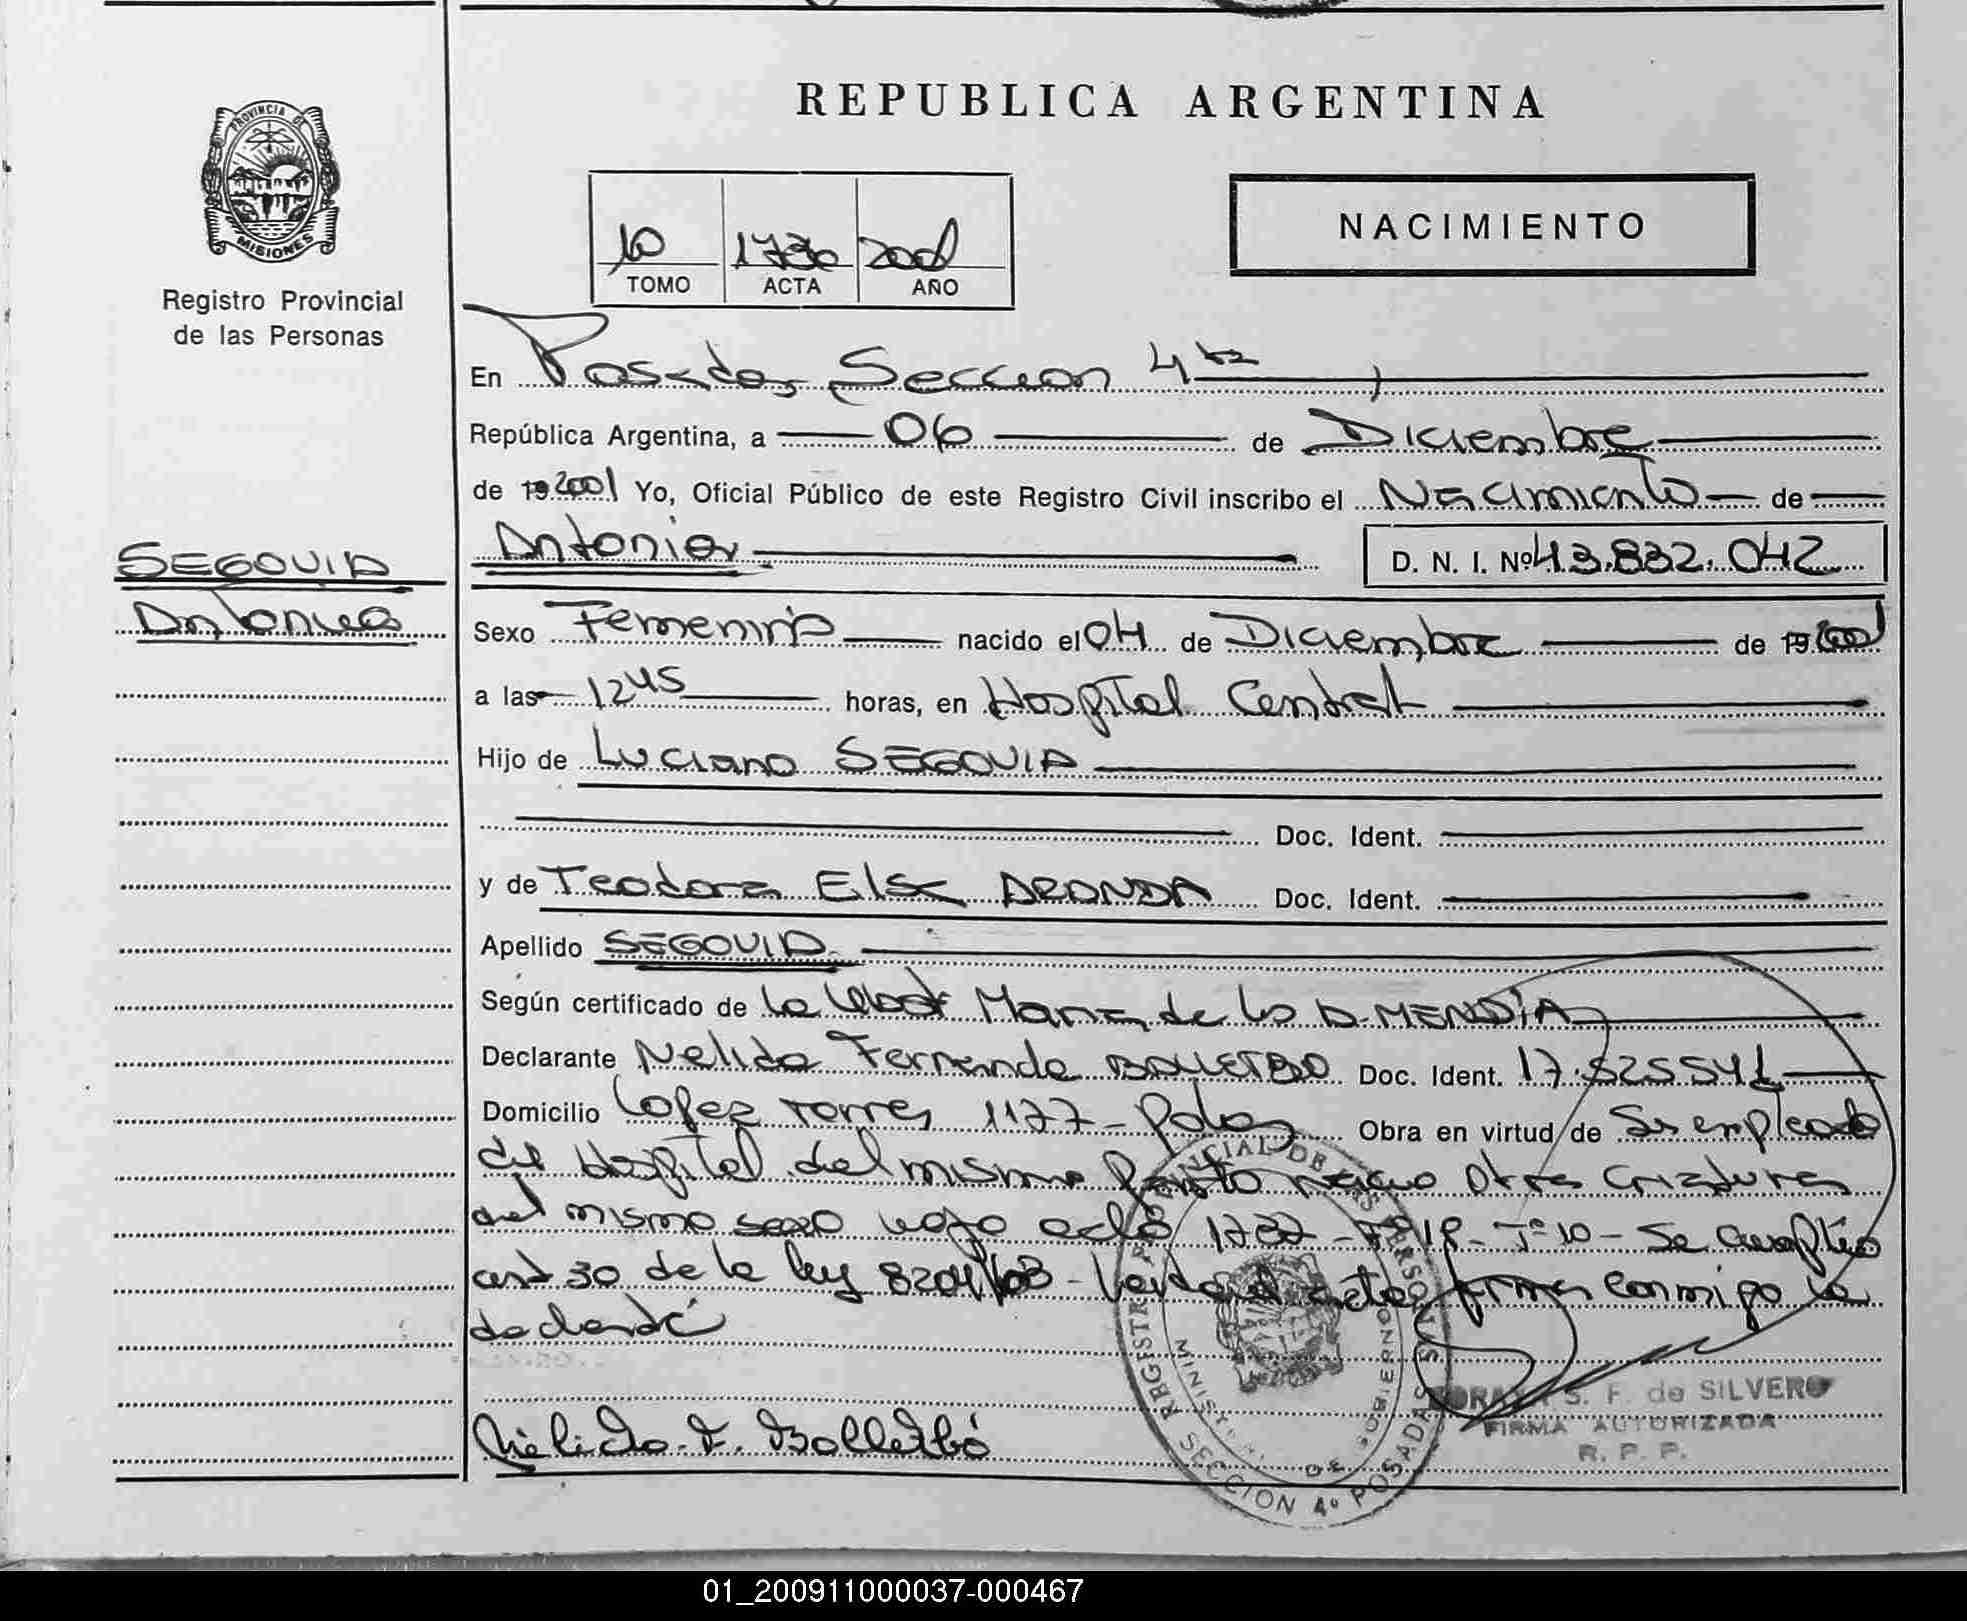 REPUBLICA ARGENTINA
PROVINCIA DE
MISIONES
Registro Provincial
de las Personas
10 1736 2001
TOMO ACTA AÑO
NACIMIENTO
En Posadas, Seccion 4ta
República Argentina, a 06 de Diciembre
de 19 2001 Yo, Oficial Público de este Registro Civil inscribo el Nacimiento de
Antonia D. N. I. Nº 43.832.042
SEGOVIA
Antonia
Sexo Femenino nacido el 04 de Diciembre de 19 2001
a las 1245 horas, en Hospital Central
Hijo de Luciano SEGOVIA
Doc. Ident.
y de Teodora Elsa Doc. Ident.
Apellido SEGOVIA
Según certificado de la Maria de los MENDIA
Declarante Nelida Fernanda BALLETBO Doc. Ident. 17.525541
Domicilio Lopez Torres 1177 - Pdas Obra en virtud de Ser empleada
del Hospital del mismo Parto nacio otra criatura
del mismo sexo bajo acta 1737 - Fº 18 - Tº 10 - Se cumplio
art 30 de la ley 8204/63 - Leida el acta, firma conmigo la
declarante
Nelida F. Balletbó
REGISTRO PROVINCIAL DE LAS PERSONAS
MINIST. DE GOBIERNO
SECCION 4º POSADAS
S. F. de SILVERO
FIRMA AUTORIZADA
R. P. P.
01_200911000037-000467